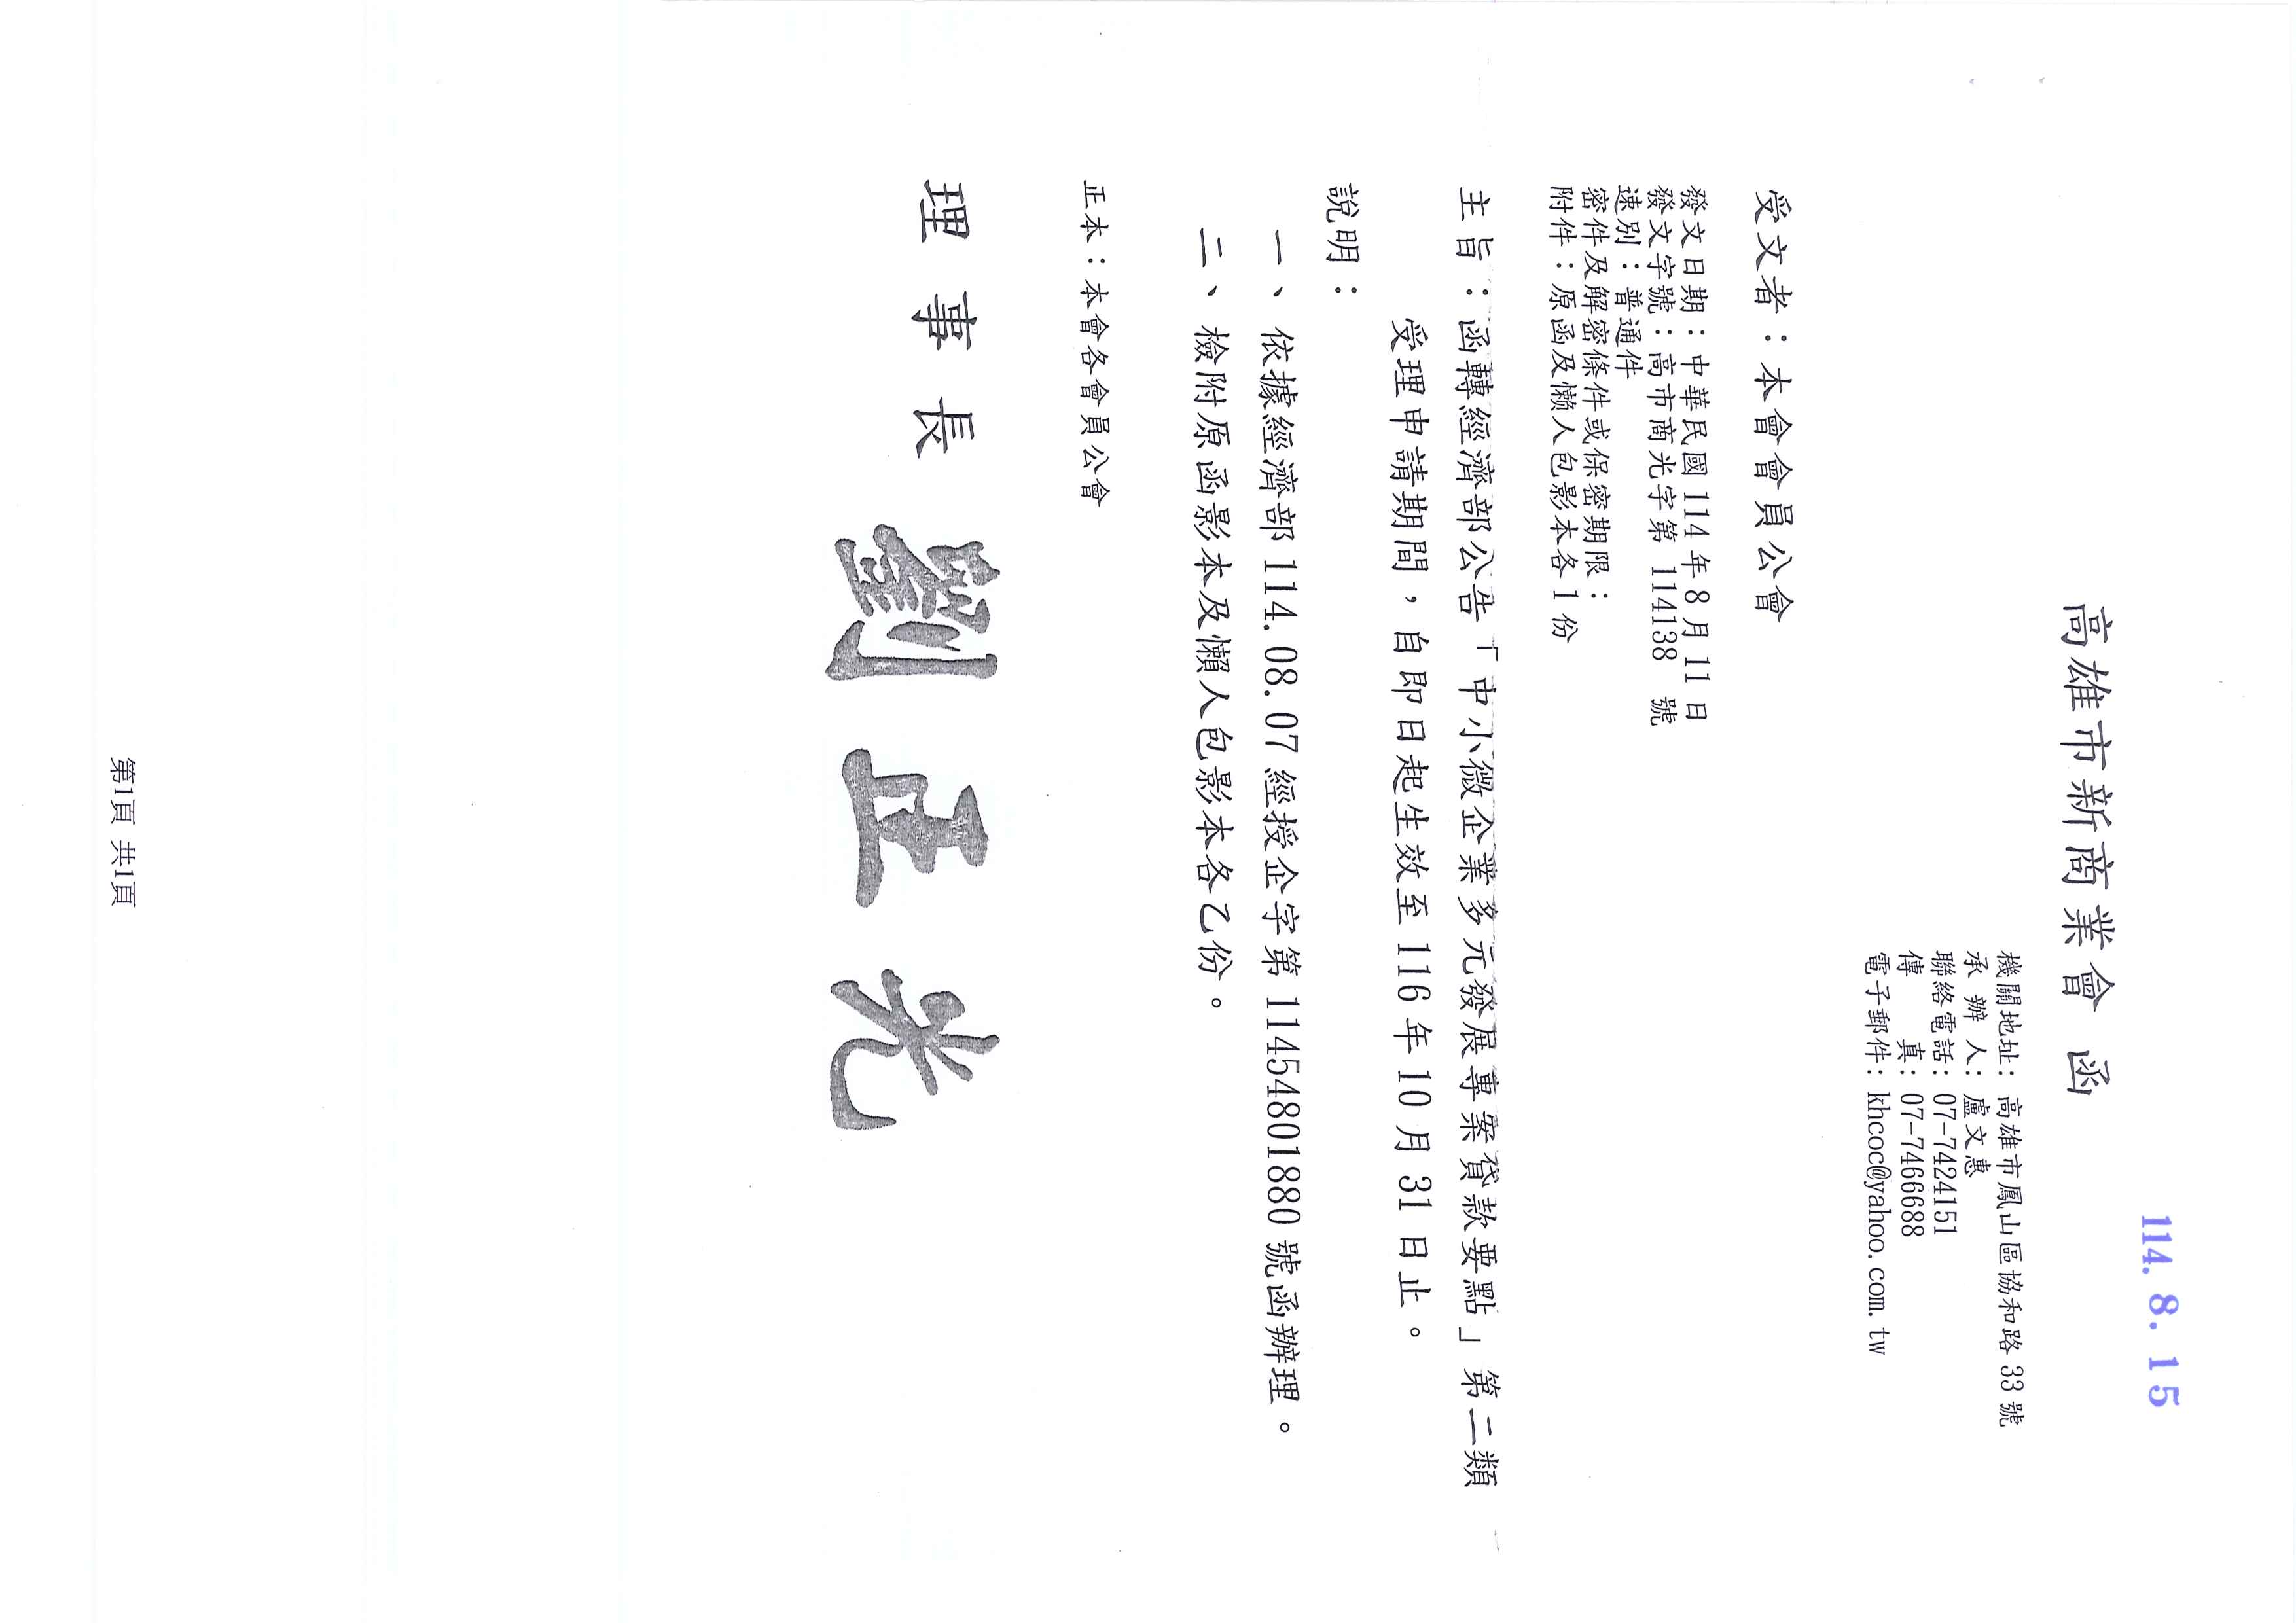 114. 8. 15
高雄市新商業會 函
機關地址：高雄市鳳山區協和路33號
承 辦 人：盧文惠
聯絡電話：07-7424151
傳　　真：07-7466688
電子郵件：khcoc@yahoo.com.tw
受文者：本會會員公會
發文日期：中華民國114年8月11日
發文字號：高市商光字第 114138 號
速別：普通件
密件及解密條件或保密期限：
附件：原函及懶人包影本各1份
主旨：函轉經濟部公告「中小微企業多元發展專案貸款要點」第二類
受理申請期間，自即日起生效至116年10月31日止。
說明：
一、依據經濟部114.08.07經授企字第11454801880號函辦理。
二、檢附原函影本及懶人包影本各乙份。
正本：本會各會員公會
理事長 劉正光
第1頁 共1頁